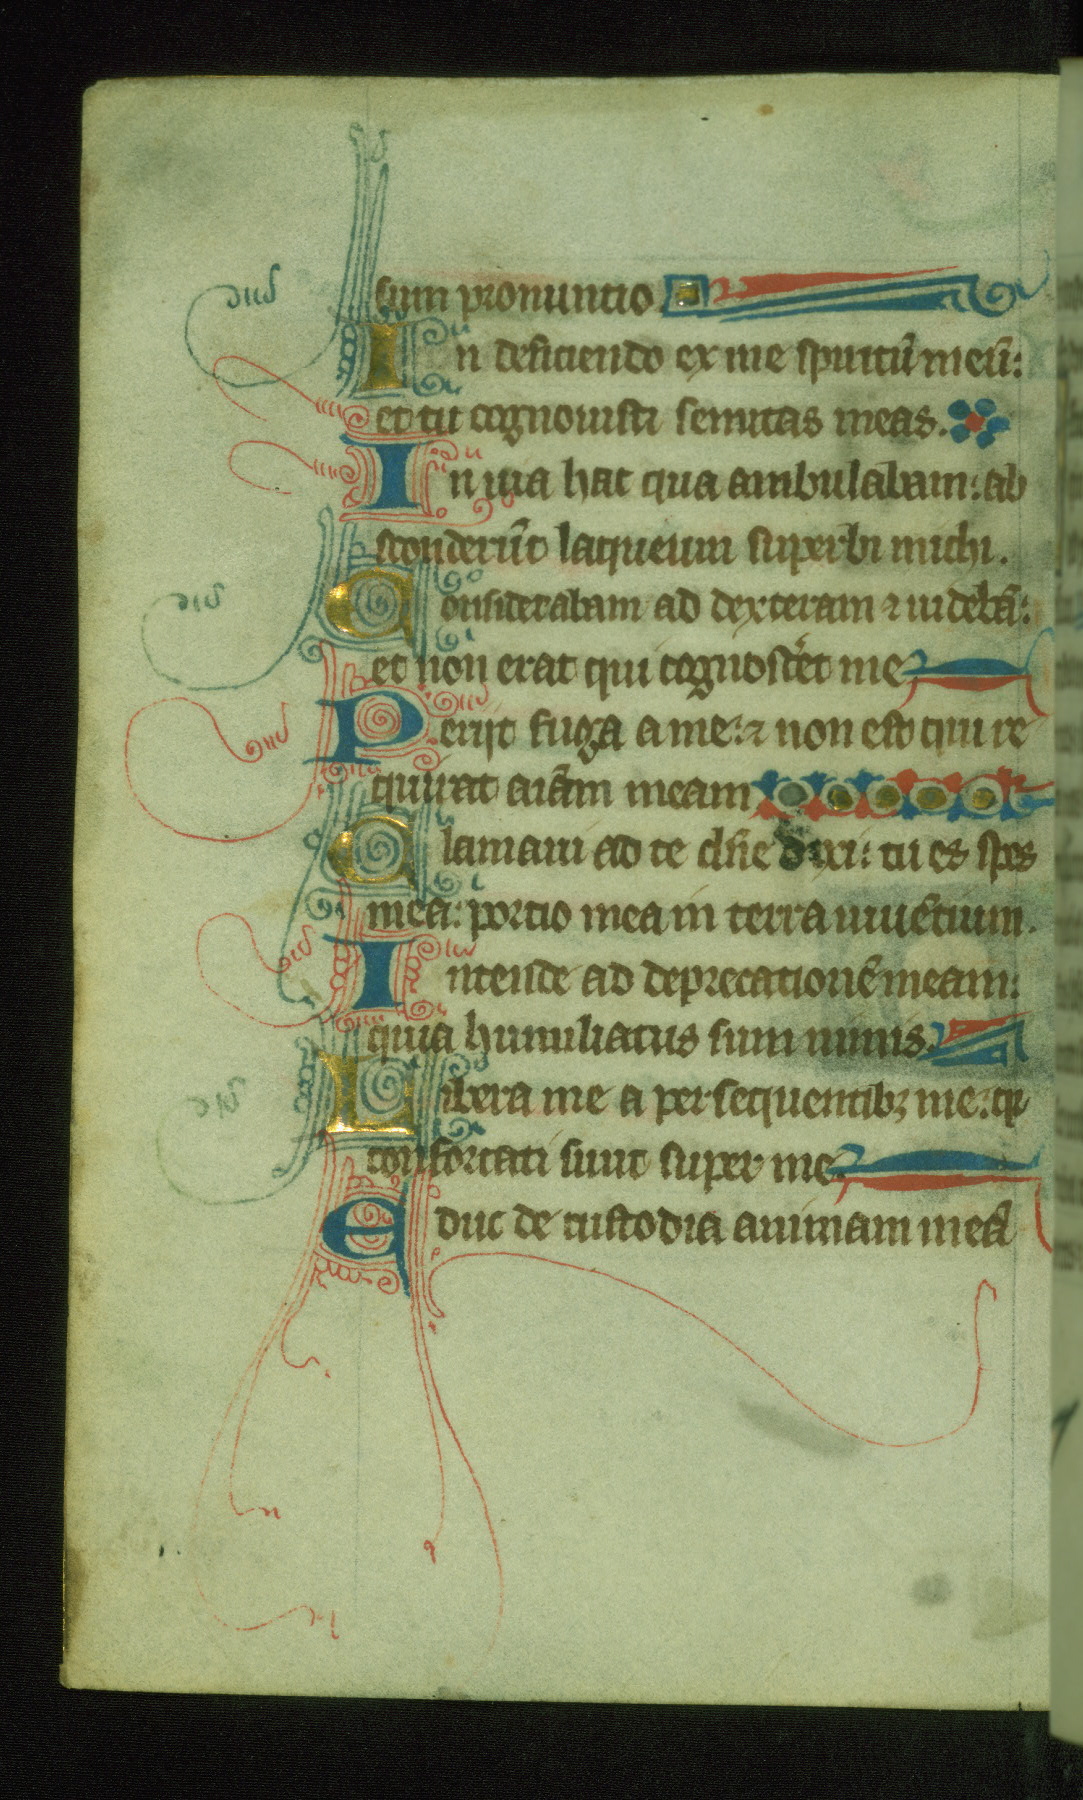 sum pronuncio
In deficiendo ex me spiritū meū:
et tu cognouisti semitas meas.
In uia hac qua ambulabam: ab
sconderūt laqueum superbi michi.
Considerabam ad dexteram ⁊ uidebā:
et non erat qui cognosc̄et me
Perijt fuga a me: ⁊ non est qui re
quirat aīam meam
Clamaui ad te dn̄e dixi: tu es spes
mea: portio mea in terra uiuētium.
Intende ad deprecationē meam:
quia humiliatus sum nimis.
Libera me a persequentibꝫ me: qr
confortati sunt super me
Educ de custodia animam meā